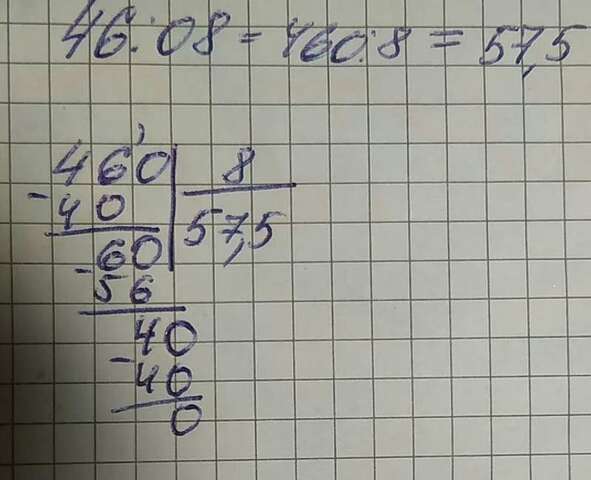 46:08=460:8=57,5
460 8
-40 57,5
-60
56
40
-40
0